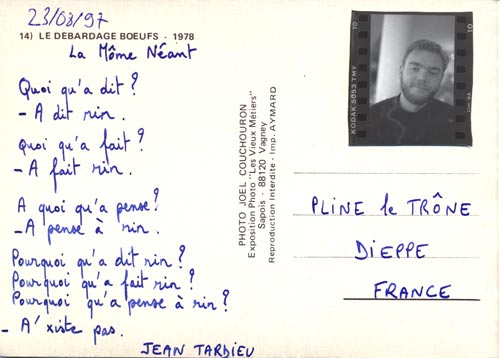 23/08/97
14) LE DEBARDAGE BOEUFS - 1978
La Môme Néant
Quoi qu'a dit ?
- A dit rin.
Quoi qu'a fait ?
- A fait rin.
A quoi qu'a pense ?
- A pense à rin.
Pourquoi qu'a dit rin ?
Pourquoi qu'a fait rin ?
Pourquoi qu'a pense à rin ?
- A'xiste pas.
JEAN TARDIEU
PHOTO JOEL COUCHOURON
Exposition Photo "Les Vieux Métiers"
Sapois - 88120 Vagney
Reproduction Interdite - Imp. AYMARD
KODAK 5053 TMY
10
10
PLINE le TRÔNE
DIEPPE
FRANCE